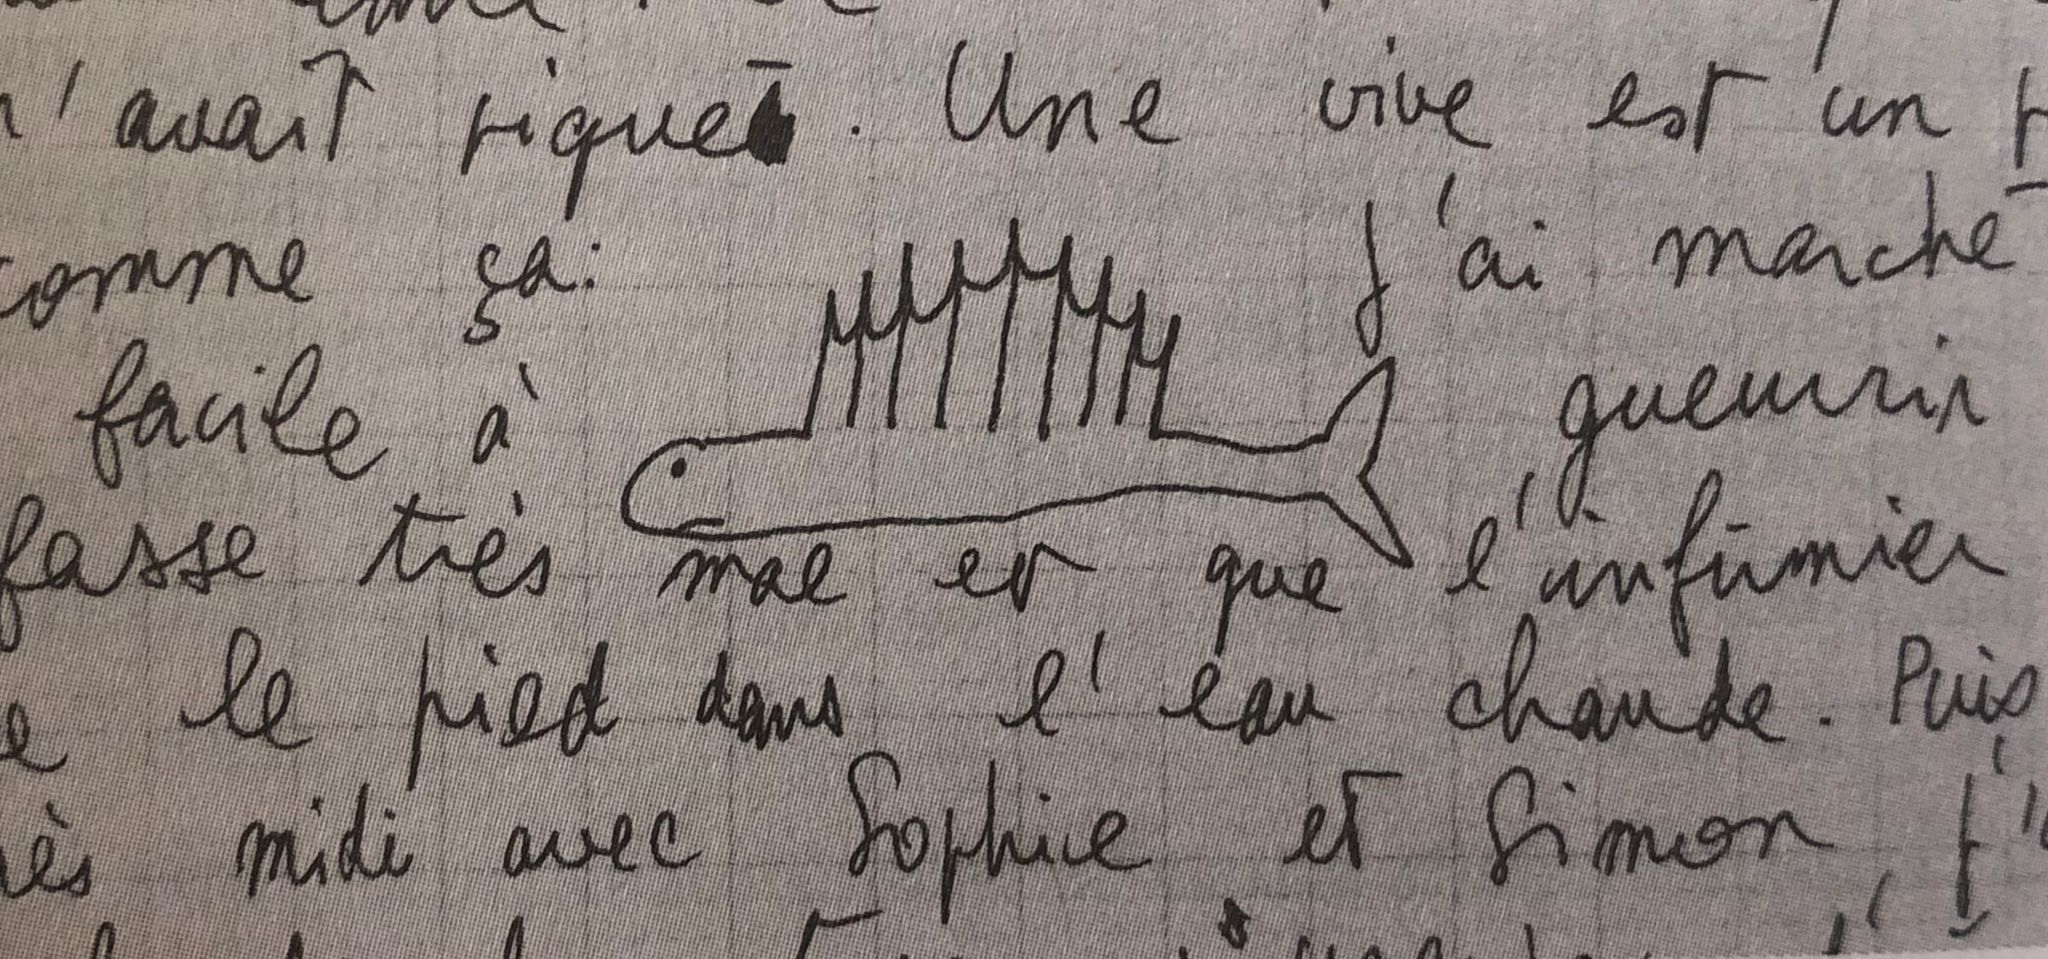 n'avait piqué. Une vive est un p
comme ça: j'ai marché
facile à gueurrir
fasse très mal et que l'infirmier
e le pied dans l'eau chaude. Puis
ès midi avec Sophie et Simon, j'